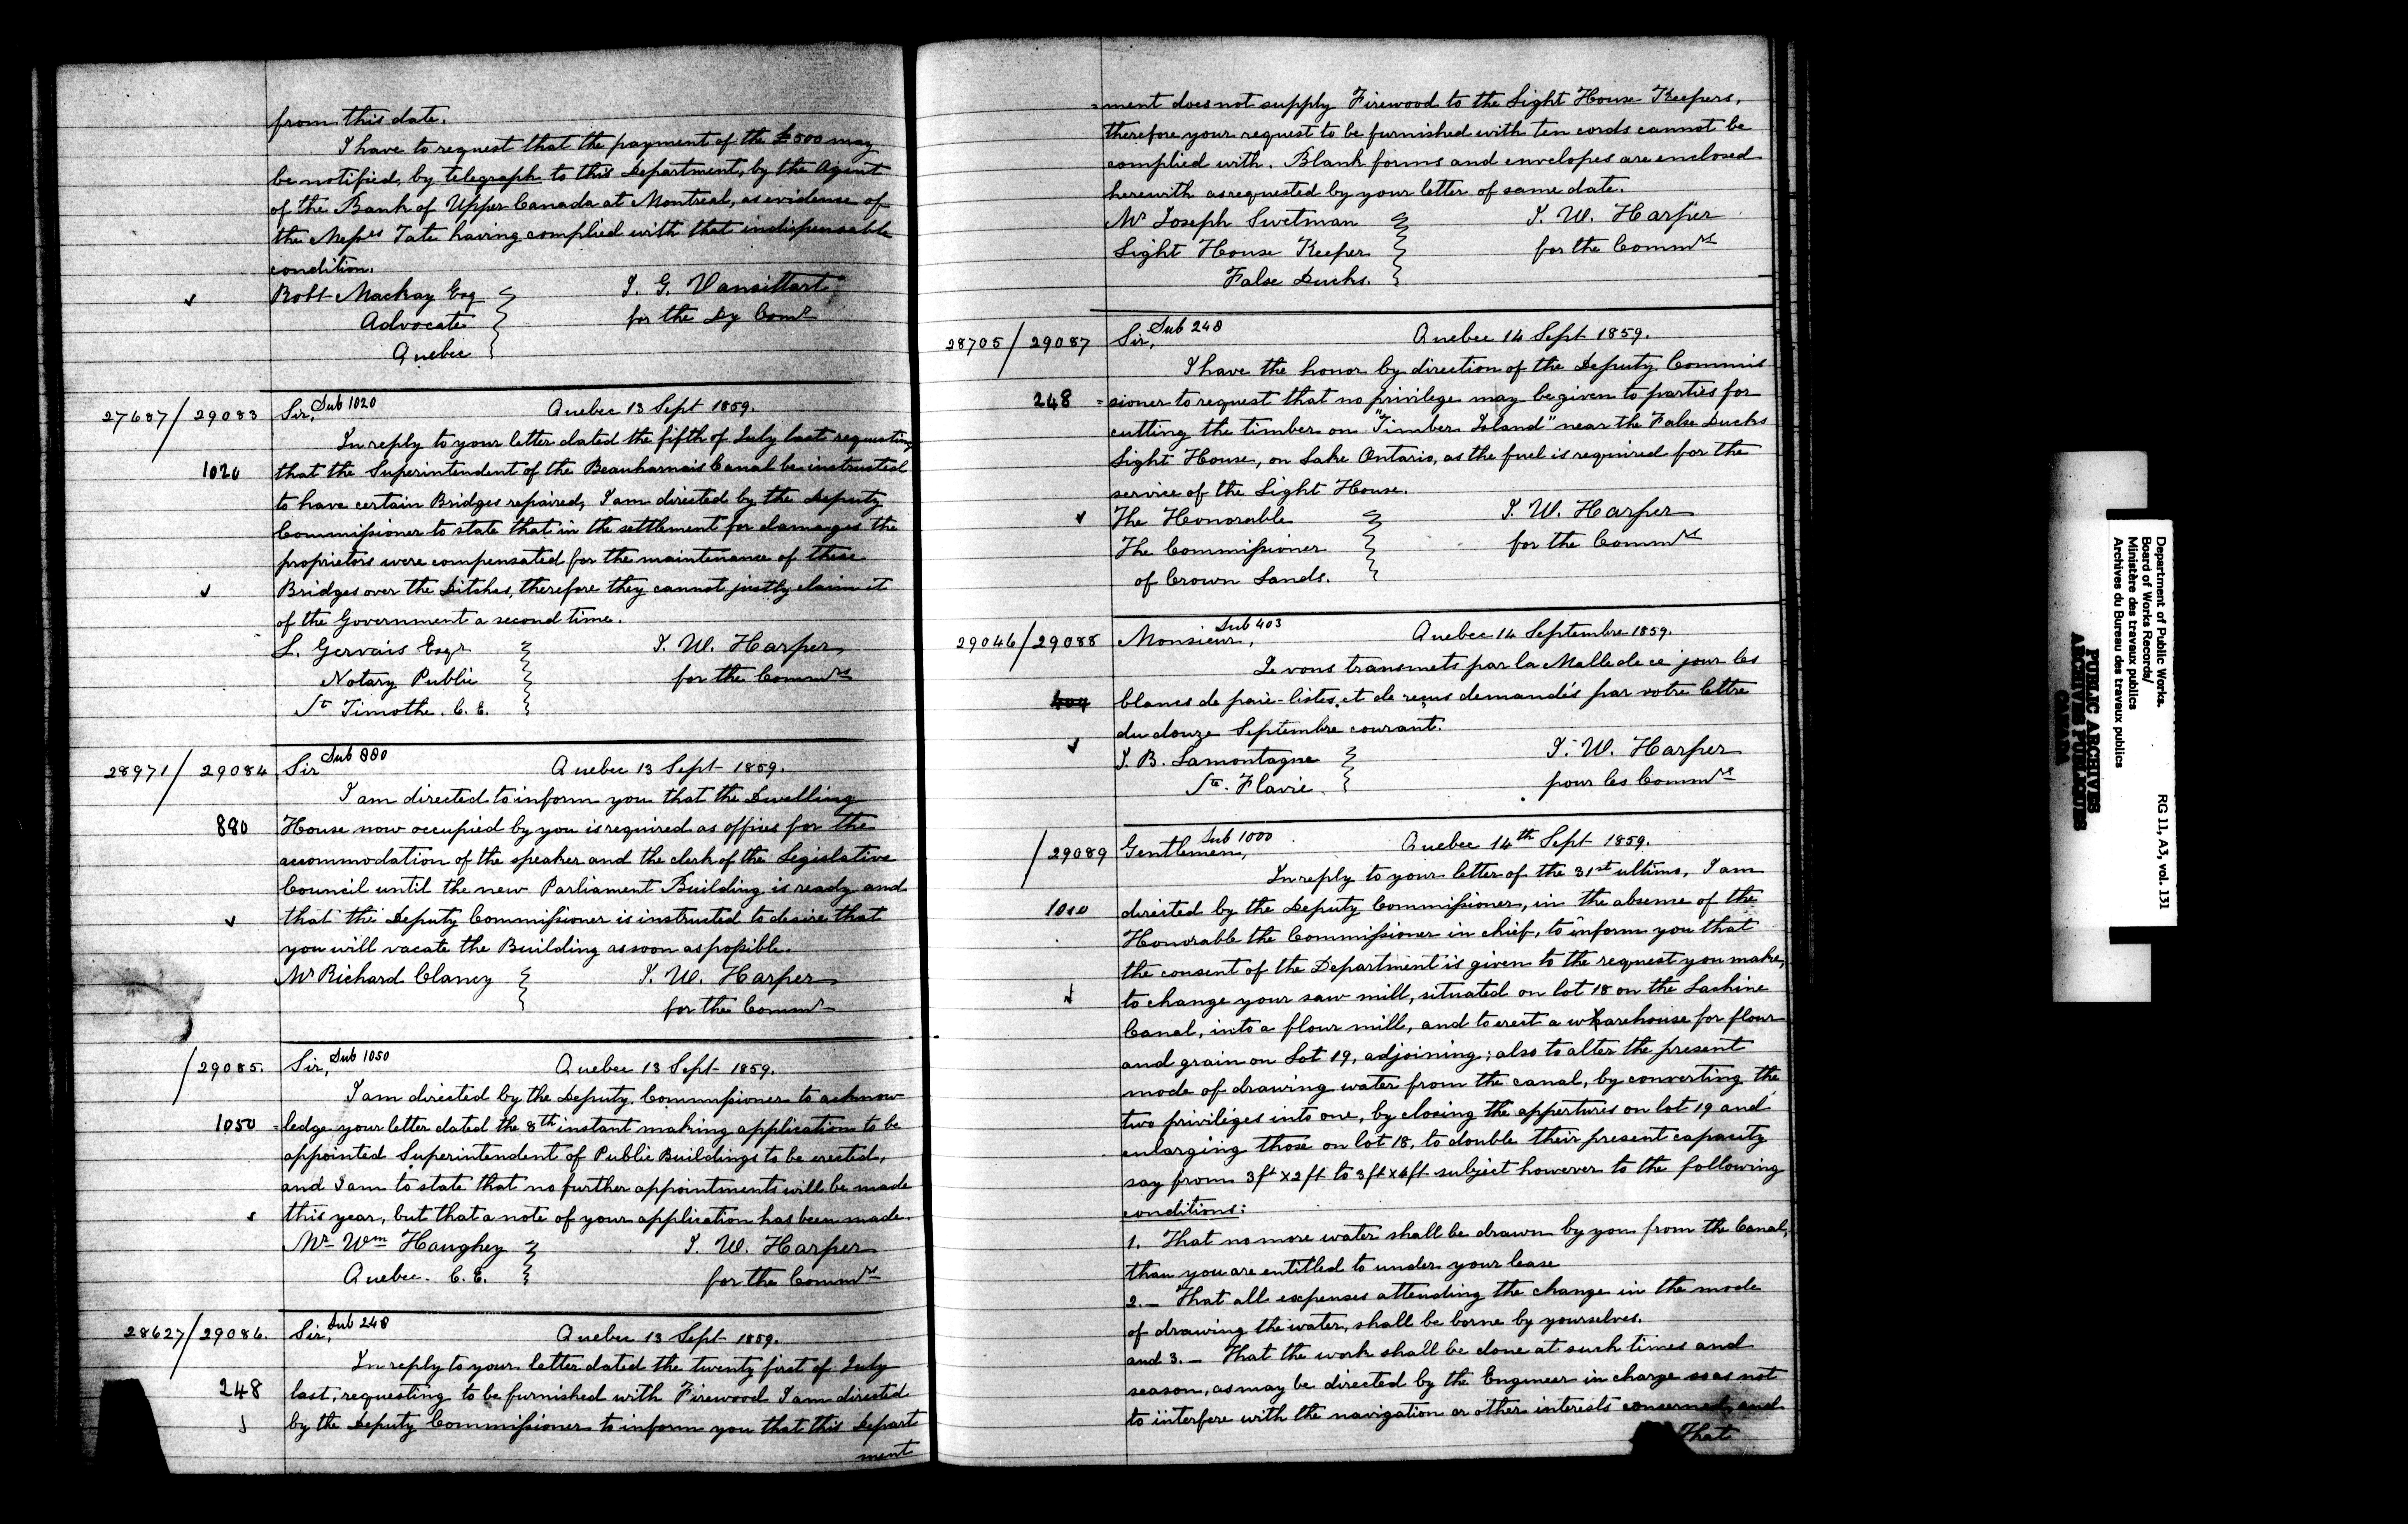 from this date.
I have to request that the payment of the £500 may
be notified, by telegraph to this Department, by the Agent
of the Bank of Upper Canada at Montreal, as evidence of
the Messrs Tate having complied with that indispensable
condition.
Robt Mackay Esq
Advocate
Quebec
J. G. Vansittart
for the Dy Comr
27687/29083
Sir, Sub 1020 Quebec 13 Sept 1859.
In reply to your letter dated the fifth of July last requesting
1020 that the Superintendent of the Beauharnais Canal be instructed
to have certain Bridges repaired, I am directed by the Deputy
Commissioner to state that in the settlement for damages the
proprietors were compensated for the maintenance of these
Bridges over the Ditches, therefore they cannot justly claim it
of the Government a second time.
L. Gervais Esqr
Notary Public
St Timothe. C. E.
J. W. Harper,
for the Commrs
28971/29084
Sir Sub 880 Quebec 13 Sept 1859.
I am directed to inform you that the Dwelling
880 House now occupied by you is required as offices for the
accommodation of the speaker and the clerk of the Legislative
Council until the new Parliament Building is ready and
that the Deputy Commissioner is instructed to desire that
you will vacate the Building as soon as possible.
Mr Richard Clancy
J. W. Harper
for the Commr
/29085.
Sir, Sub 1050 Quebec 13 Sept 1859.
I am directed by the Deputy Commissioner to acknow
1050 =ledge your letter dated the 8th instant making application to be
appointed Superintendent of Public Buildings to be erected,
and I am to state that no further appointments will be made
this year, but that a note of your application has been made.
Mr Wm Haughey
Quebec. C. E.
J. W. Harper
for the Commrs
28627/29086.
Sir, Sub 248 Quebec 13 Sept 1859.
In reply to your letter dated the twenty first of July
248 last, requesting to be furnished with Firewood I am directed
by the Deputy Commissioner to inform you that this Depart
ment
=ment does not supply Firewood to the Light House Keepers,
therefore your request to be furnished with ten cords cannot be
complied with. Blank forms and envelopes are enclosed
herewith as requested by your letter of same date.
Mr Joseph Swetman
Light House Keeper
False Ducks.
J. W. Harper
for the Commrs
28705/29087
Sir, Sub 248 Quebec 14 Sept 1859.
I have the honor by direction of the Deputy Commis
248 =sioner to request that no privilege may be given to parties for
cutting the timber on "Timber Island" near the False Ducks
Light House, on Lake Ontario, as the fuel is required for the
service of the Light House.
The Honorable
The Commissioner
of Crown Lands.
J. W. Harper
for the Commrs
29046/29088
Monsieur, Sub 403 Quebec 14 Septembre 1859.
Je vous transmets par la Malle de ce jour les
blancs de paie-listes, et de reçus demandés par votre lettre
du douze Septembre courant.
J. B. Lamontagne
Ste. Flavie.
J. W. Harper
pour les Commrs
/29089
Gentlemen, Sub 1000 Quebec 14th Sept 1859.
In reply to your letter of the 31st ultimo, I am
directed by the Deputy Commissioner, in the absence of the
Honorable the Commissioner in chief, to inform you that
the consent of the Department is given to the request you make,
to change your saw mill, situated on lot 18 on the Lachine
Canal, into a flour mill, and to erect a wharehouse for flour
and grain on Lot 19, adjoining; also to alter the present
mode of drawing water from the canal, by converting the
two privileges into one, by closing the appertures on lot 19 and
enlarging those on lot 18, to double their present capacity
say from 3ft x 2ft to 3ft x 4ft subject however to the following
conditions:
1. That no more water shall be drawn by you from the Canal,
than you are entitled to under your lease
2.— That all expenses attending the change in the mode
of drawing the water, shall be borne by yourselves.
and 3.— That the work shall be done at such times and
season, as may be directed by the Engineer in charge so as not
to interfere with the navigation or other interests concerned, and
That
Department of Public Works.
Board of Works Records/
Ministère des travaux publics
Archives du Bureau des travaux publics
RG 11, A3, vol. 131
PUBLIC ARCHIVES
ARCHIVES PUBLIQUES
CANADA